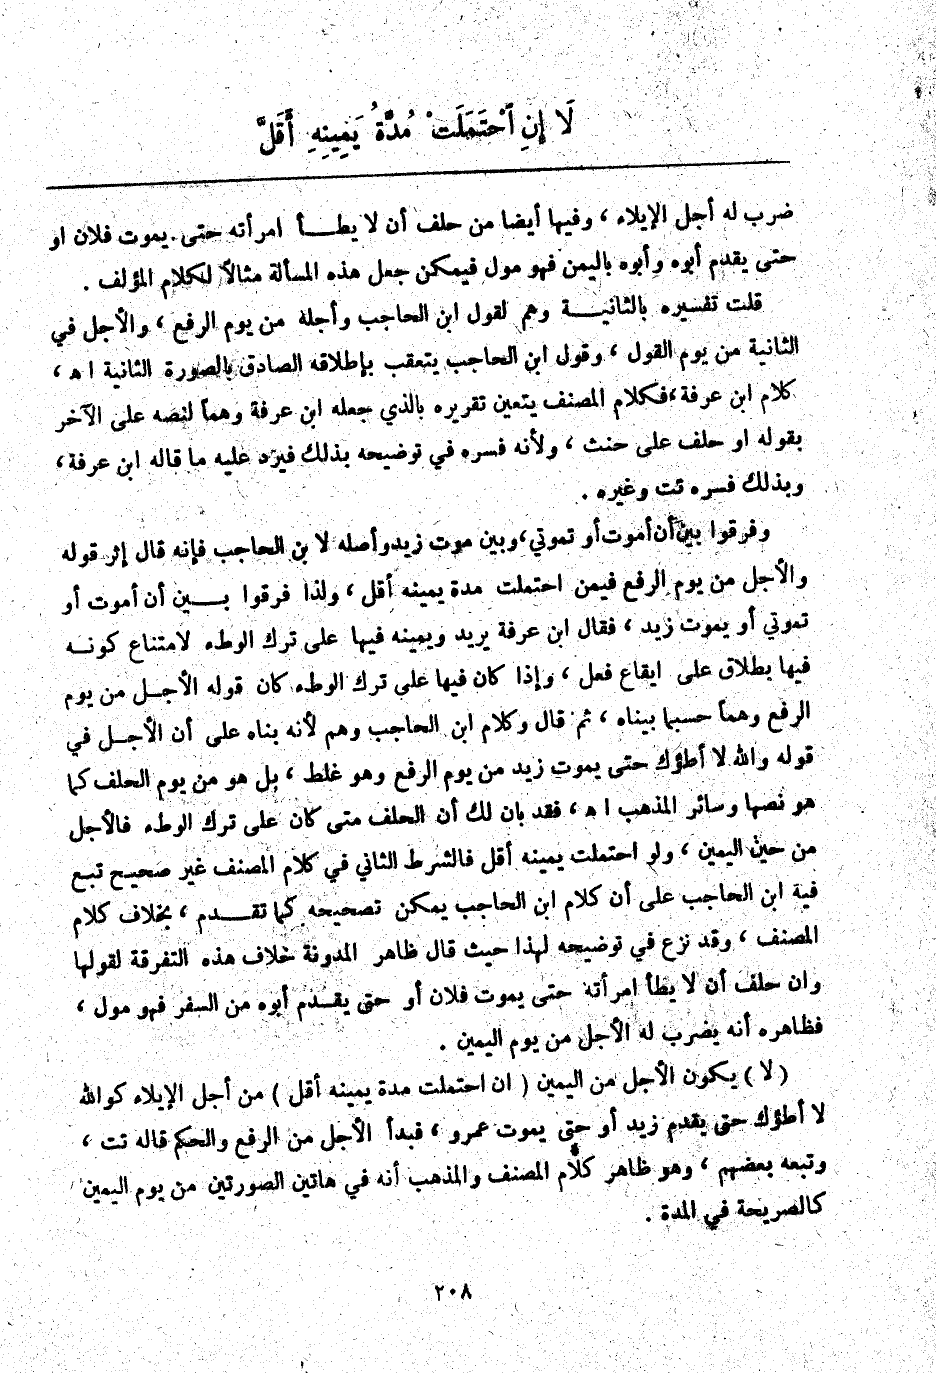 لَا إِنِ ٱحْتَمَلَتْ مُدَّةُ يَمِينِهِ أَقَلَّ
ضرب له أجل الإيلاء ، وفيها أيضا من حلف أن لا يطــأ امرأته حتى يموت فلان او
حتى يقدم أبوه وأبوه باليمن فهو مول فيمكن جعل هذه المسألة مثالاً لكلام المؤلف .
قلت تفسيره بالثانيــة وهم لقول ابن الحاجب وأجلة من يوم الرفع ، والأجل في
الثانية من يوم القول ، وقول ابن الحاجب يتعقب بإطلاقه الصادق بالصورة الثانية ا ه ،
كلام ابن عرفة ، فكلام المصنف يتعين تقريره بالذي جعله ابن عرفة وهماً لنصه على الآخر
بقوله او حلف على حنث ، ولأنه فسره في توضيحه بذلك فيرد عليه ما قاله ابن عرفة ،
وبذلك فسره تت وغيره .
وفرقوا بين أن أموت أو تموتي ، وبين موت زيد وأصله لا بن الحاجب فإنه قال إثر قوله
والأجل من يوم الرفع فيمن احتملت مدة يمينه أقل ، ولذا فرقوا بــين أن أموت أو
تموتي أو يموت زيد ، فقال ابن عرفة يريد ويمينه فيها على ترك الوطء لامتناع كونــه
فيها بطلاق على ايقاع فعل ، وإذا كان فيها على ترك الوطء كان قوله الأجــل من يوم
الرفع وهماً حسبما بيناه ، ثم قال وكلام ابن الحاجب وهم لأنه بناه على أن الأجــل في
قوله والله لا أطؤك حتى يموت زيد من يوم الرفع وهو غلط ، بل هو من يوم الحلف كما
هو نصها وسائر المذهب ا ه ، فقد بان لك أن الحلف متى كان على ترك الوطء فالأجل
من حين اليمين ، ولو احتملت يمينه أقل فالشرط الثاني في كلام المصنف غير صحيح تبع
فية ابن الحاجب على أن كلام ابن الحاجب يمكن تصحيحه كما تقــدم ، بخلاف كلام
المصنف ، وقد نزع في توضيحه لهذا حيث قال ظاهر المدونة خلاف هذه التفرقة لقولها
وان حلف أن لا يطأ امرأته حتى يموت فلان أو حتى يقــدم أبوه من السفر فهو مول ،
فظاهره أنه يضرب له الأجل من يوم اليمين .
( لا ) يكون الأجل من اليمين ( ان احتملت مدة يمينه أقل ) من أجل الإيلاء كوالله
لا أطؤك حتى يقدم زيد أو حتى يموت عمرو ، فبدأ الأجل من الرفع والحكم قاله تت ،
وتبعه بعضهم ، وهو ظاهر كلام المصنف والمذهب أنه في هاتين الصورتين من يوم اليمين
كالصريحة في المدة .
٢٠٨